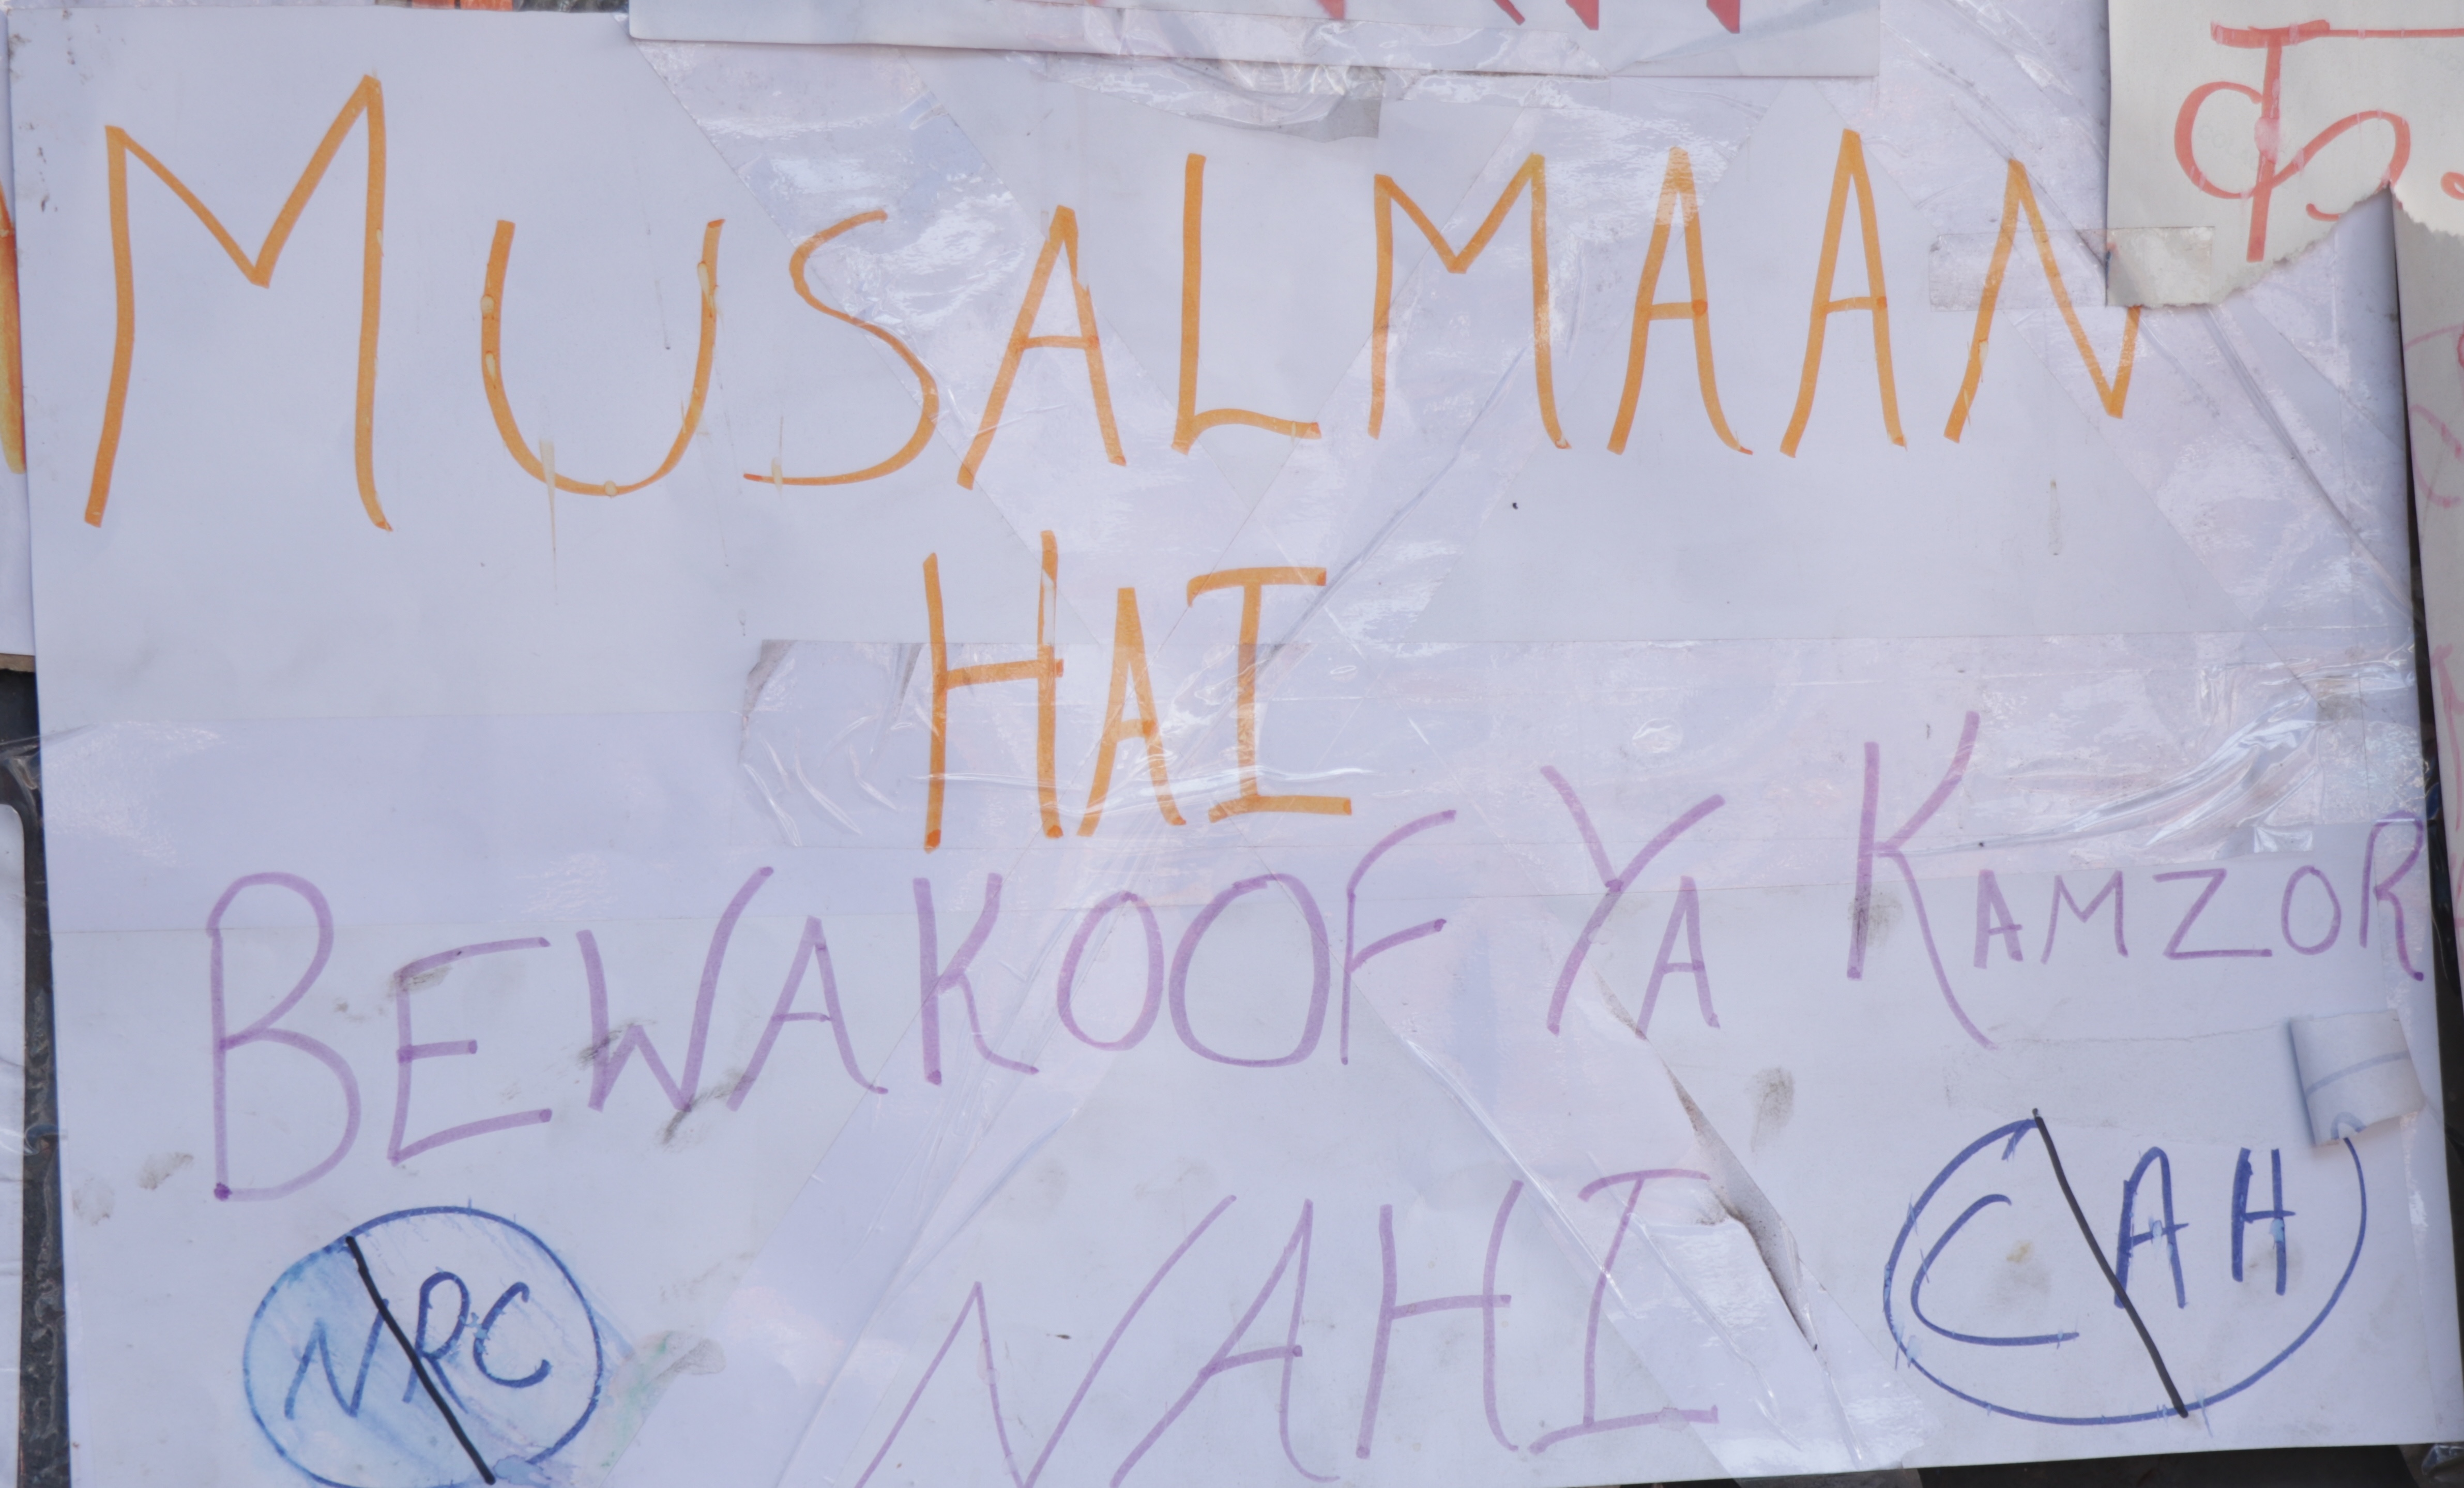 MUSALMAAN
HAI
BEWAKOOF YA KAMZOR
NAHI
NRC
CAH